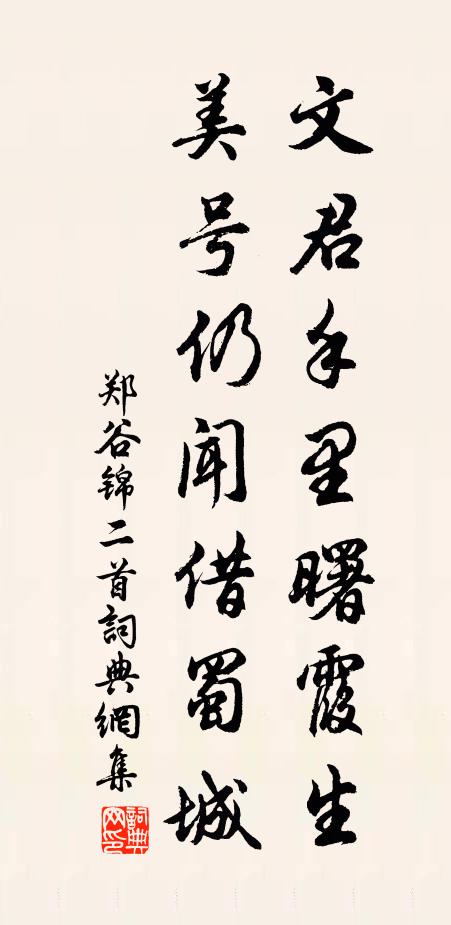 文君手里曙霞生
美号仍闻借蜀城
郑谷锦二首詞典網集
詞典网印